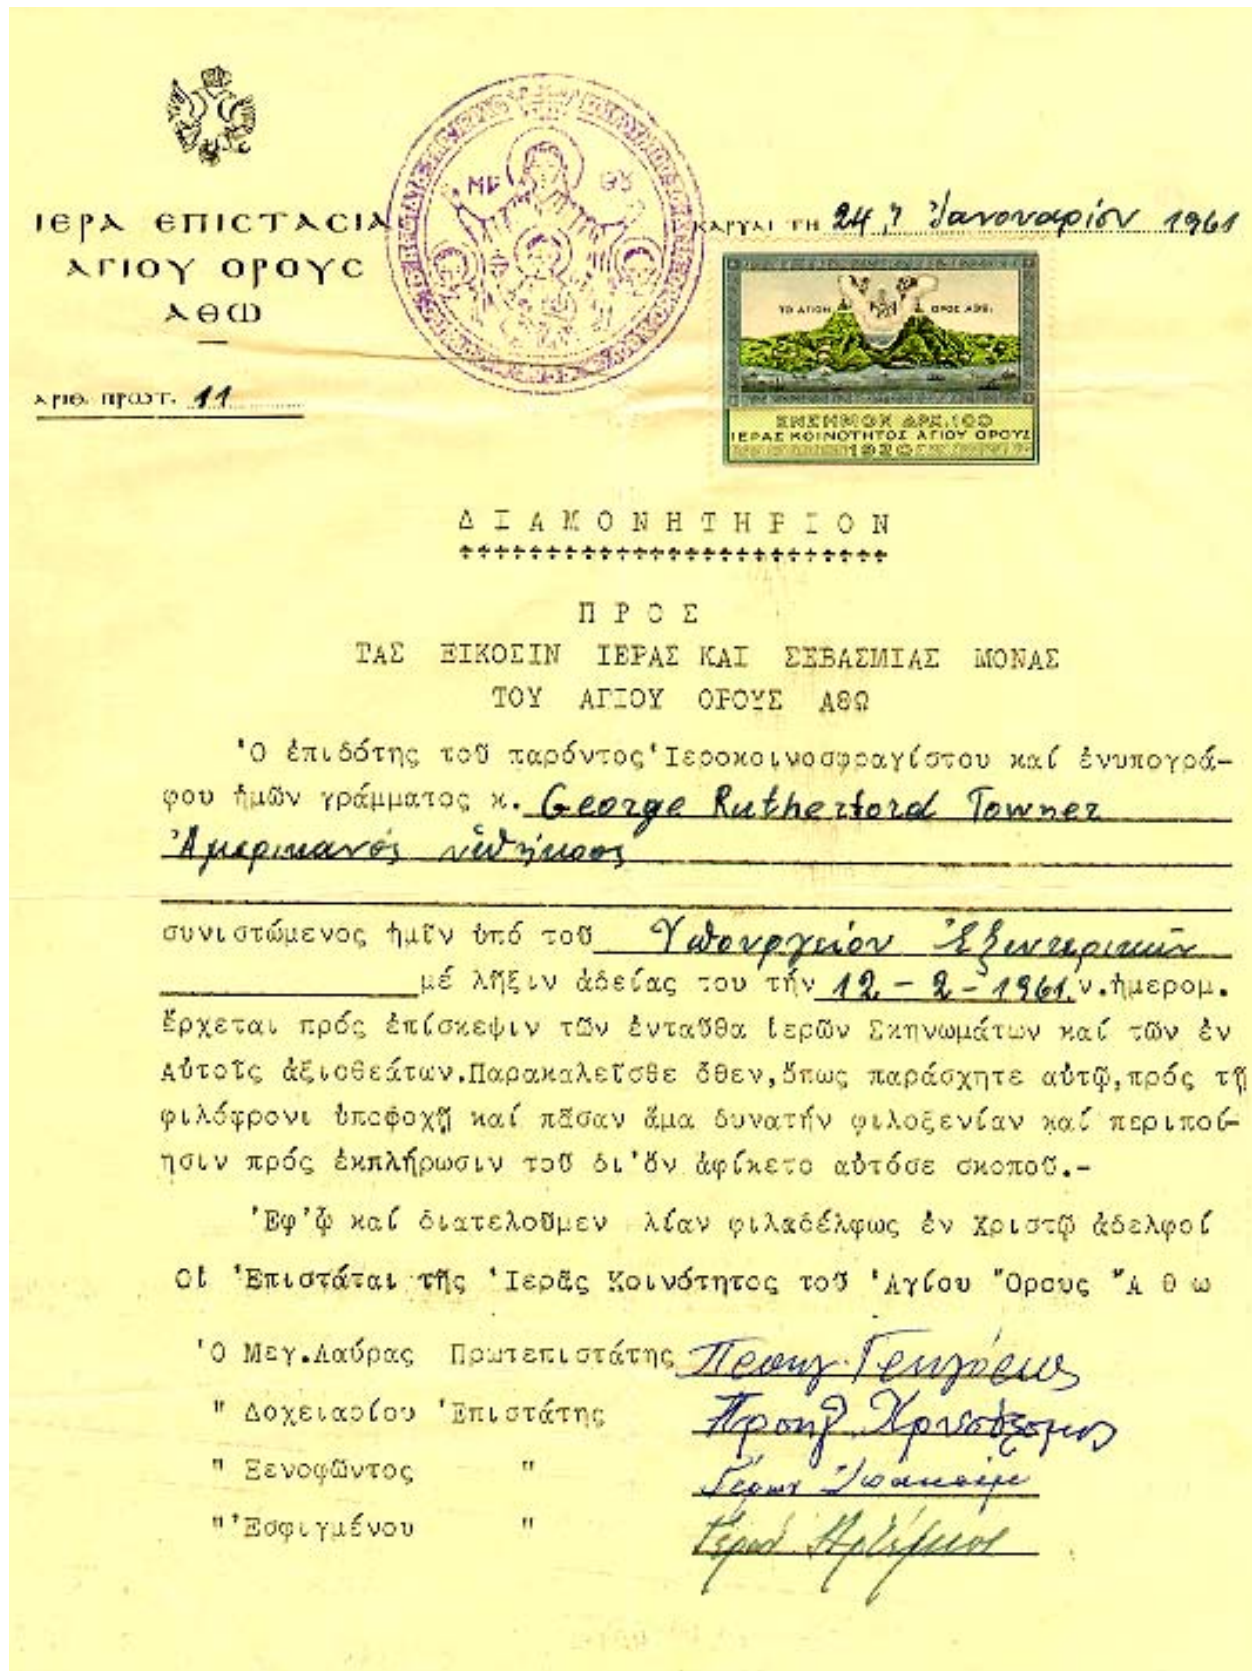 ΙΕΡΑ ΕΠΙCΤΑCΙΑ
ΑΓΙΟΥ ΟΡΟΥC
ΑΘΩ
ΑΡΙΘ. ΠΡΩΤ. 11
ΜΡ ΘΥ
ΚΑΡΥΑΙ ΤΗ 24 ῃ Ἰανουαρίου 1961
ΤΟ ΑΓΙΟΝ ΟΡΟΣ ΑΘΩ
ΕΝΣΗΜΟΝ ΔΡΧ. 100
ΙΕΡΑΣ ΚΟΙΝΟΤΗΤΟΣ ΑΓΙΟΥ ΟΡΟΥΣ
1926
ΔΙΑΜΟΝΗΤΗΡΙΟΝ
ΠΡΟΣ
ΤΑΣ ΕΙΚΟΣΙΝ ΙΕΡΑΣ ΚΑΙ ΣΕΒΑΣΜΙΑΣ ΜΟΝΑΣ
ΤΟΥ ΑΓΙΟΥ ΟΡΟΥΣ ΑΘΩ
Ὁ ἐπιδότης τοῦ παρόντος Ἱεροκοινοσφραγίστου καί ἐνυπογρά-
φου ἡμῶν γράμματος κ. George Rutherford Towner
Ἀμερικανός ὑπήκοος
συνιστώμενος ἡμῖν ὑπό τοῦ Ὑπουργείου Ἐξωτερικῶν
μέ λῆξιν ἀδείας του τήν 12 - 2 - 1961 ν.ἡμερομ.
ἔρχεται πρός ἐπίσκεψιν τῶν ἐνταῦθα ἱερῶν Σκηνωμάτων καί τῶν ἐν
Αὐτοῖς ἀξιοθεάτων.Παρακαλεῖσθε ὅθεν,ὅπως παράσχητε αὐτῷ,πρός τῇ
φιλόφρονι ὑποδοχῇ καί πᾶσαν ἅμα δυνατήν φιλοξενίαν καί περιποί-
ησιν πρός ἐκπλήρωσιν τοῦ δι'ὅν ἀφίκετο αὐτόσε σκοποῦ.-
Ἐφ'ᾧ καί διατελοῦμεν λίαν φιλαδέλφως ἐν Χριστῷ ἀδελφοί
Οἱ Ἐπιστάται τῆς Ἱερᾶς Κοινότητος τοῦ Ἁγίου Ὄρους Ἄ θ ω
Ὁ Μεγ.Λαύρας Πρωτεπιστάτης Προηγ. Γρηγόριος
" Δοχειαρίου Ἐπιστάτης Προηγ. Χρυσόστομος
" Ξενοφῶντος " Γέρων Ἰωακείμ
" Ἐσφιγμένου " Γέρων Ἀρτέμιος